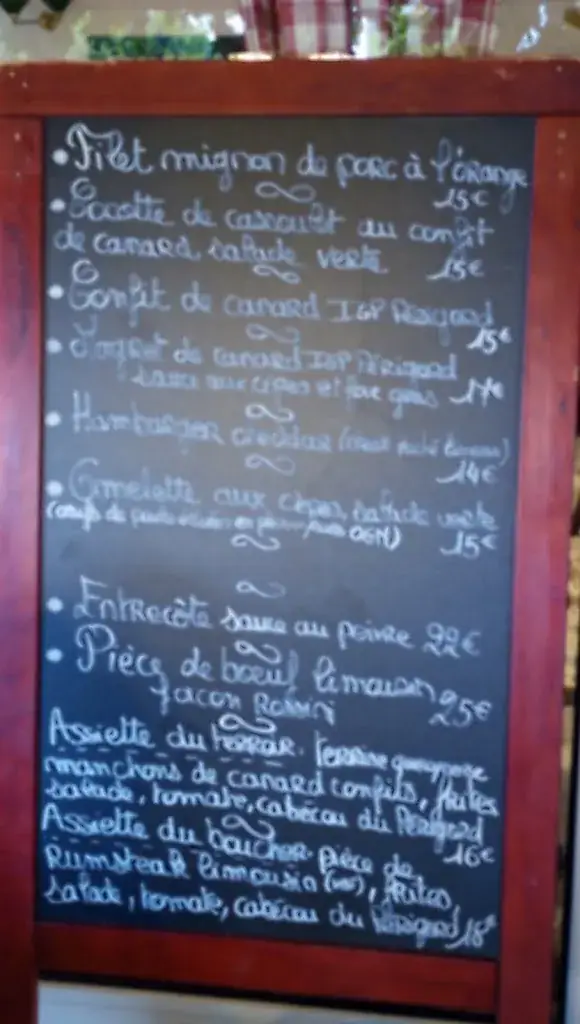 • Filet mignon de porc à l'orange
15€
• Cocotte de cassoulet au confit
de canard, salade verte 15€
• Confit de canard IGP Périgord
15€
• de canard IGP Périgord
sauce aux cèpes et foie gras 17€
• Hamburger cheddar (steak haché
14€
• Omelette aux cèpes, salade verte
(oeufs de poules élevées en plein air sans OGM) 15€
• Entrecôte sauce au poivre 22€
• Pièce de boeuf limousin
façon Rossini 25€
Assiette du terroir. Terrine
manchons de canard confits, frites
salade, tomate, cabécou du Périgord
16€
Assiette du boucher. pièce de
Rumsteak limousin (VBF), frites,
salade, tomate, cabécou du Périgord 18€